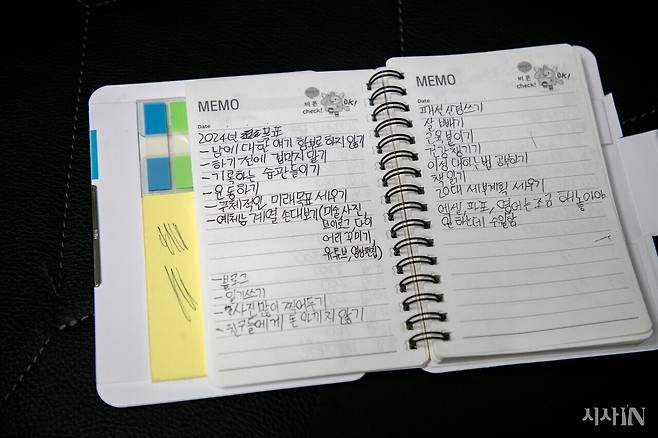 MEMO
Date
비콘
check!
OK!
2024년 목표
- 남에 대한 얘기 함부로 하지 않기
- 하기 전에 겁먹지 말기
- 기록하는 습관 들이기
- 운동하기
- 구체적인 미래목표 세우기
- 예체능 계열 손대보기 (미술, 사진,
브이로그, 다이
어리 꾸미기,
유튜브, 영상편집)
- 블로그
- 일기쓰기
- 사진 많이 찍어두기
- 친구들에게 돈 아끼지 않기
MEMO
Date
비콘
check!
OK!
살 빼기
돈 붙이기
건강 챙기기
이성 대하는 법 공부하기
책 읽기
20대 세부계획 세우기
엑셀, 파포, 영어는 조금 해놓아야
일하는데 수월함
시사IN